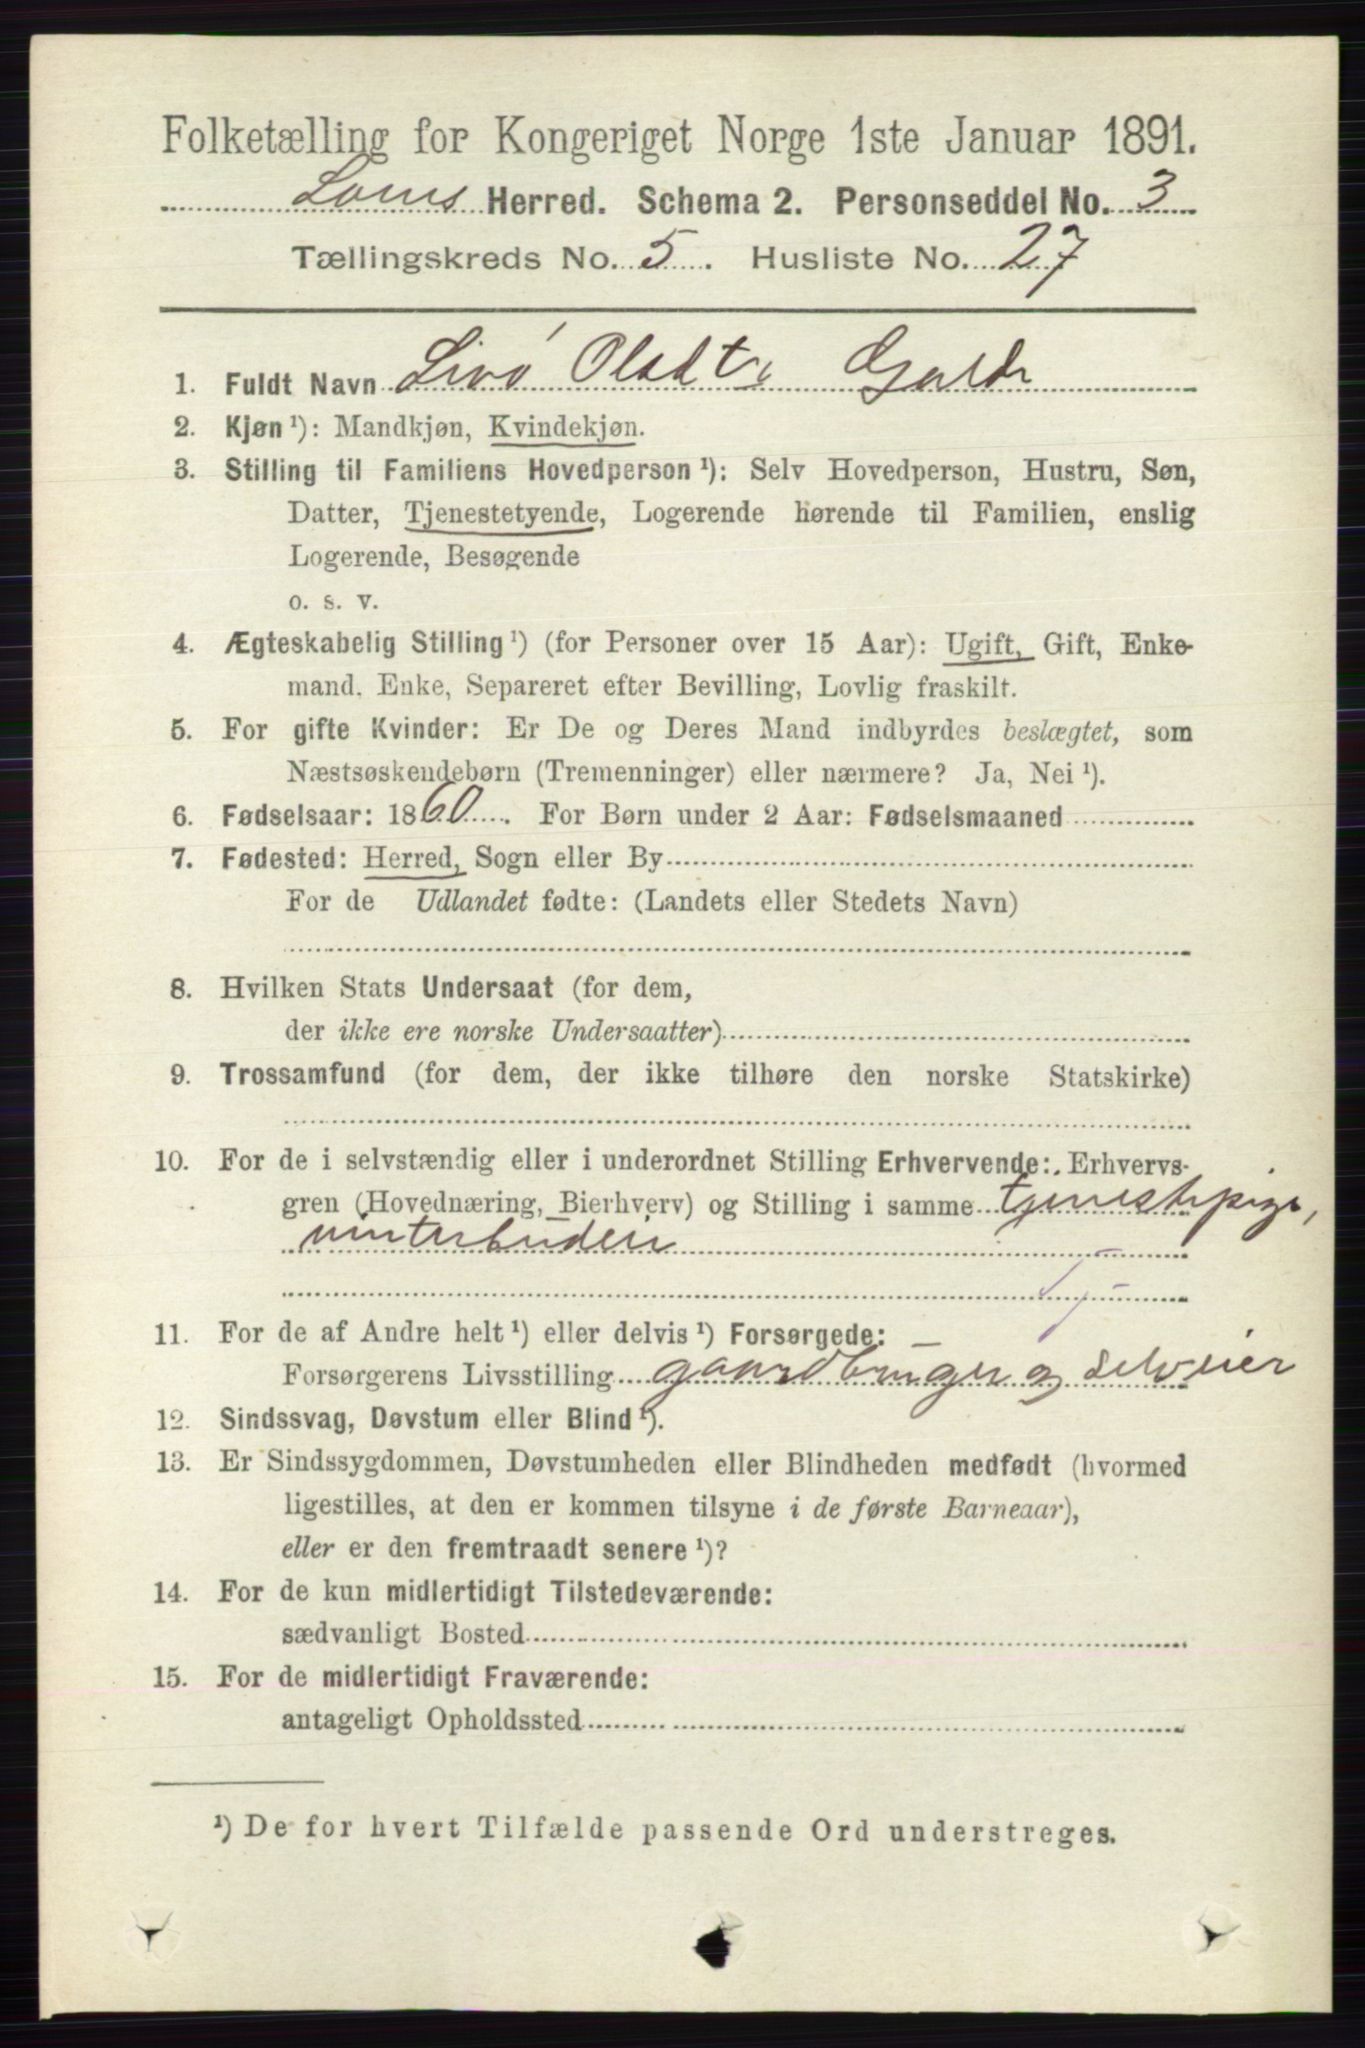 Folketælling for Kongeriget Norge 1ste Januar 1891.
Loms Herred. Schema 2. Personseddel No. 3
Tællingskreds No. 5. Husliste No. 27
1. Fuldt Navn Livø Olsdtr Galde
2. Kjøn ¹): Mandkjøn, Kvindekjøn.
3. Stilling til Familiens Hovedperson ¹): Selv Hovedperson, Hustru, Søn,
Datter, Tjenestetyende, Logerende hørende til Familien, enslig
Logerende, Besøgende
o. s. v.
4. Ægteskabelig Stilling ¹) (for Personer over 15 Aar): Ugift, Gift, Enke-
mand, Enke, Separeret efter Bevilling, Lovlig fraskilt.
5. For gifte Kvinder: Er De og Deres Mand indbyrdes beslægtet, som
Næstsøskendebørn (Tremenninger) eller nærmere? Ja, Nei ¹).
6. Fødselsaar: 1860. For Børn under 2 Aar: Fødselsmaaned
7. Fødested: Herred, Sogn eller By
For de Udlandet fødte: (Landets eller Stedets Navn)
8. Hvilken Stats Undersaat (for dem,
der ikke ere norske Undersaatter)
9. Trossamfund (for dem, der ikke tilhøre den norske Statskirke)
10. For de i selvstændig eller i underordnet Stilling Erhvervende: Erhvervs-
gren (Hovednæring, Bierhverv) og Stilling i samme tjenestepige,
11. For de af Andre helt ¹) eller delvis ¹) Forsørgede:
Forsørgerens Livsstilling gaardbruger og selveier
12. Sindssvag, Døvstum eller Blind ¹).
13. Er Sindssygdommen, Døvstumheden eller Blindheden medfødt (hvormed
ligestilles, at den er kommen tilsyne i de første Barneaar),
eller er den fremtraadt senere ¹)?
14. For de kun midlertidigt Tilstedeværende:
sædvanligt Bosted
15. For de midlertidigt Fraværende:
antageligt Opholdssted
¹) De for hvert Tilfælde passende Ord understreges.